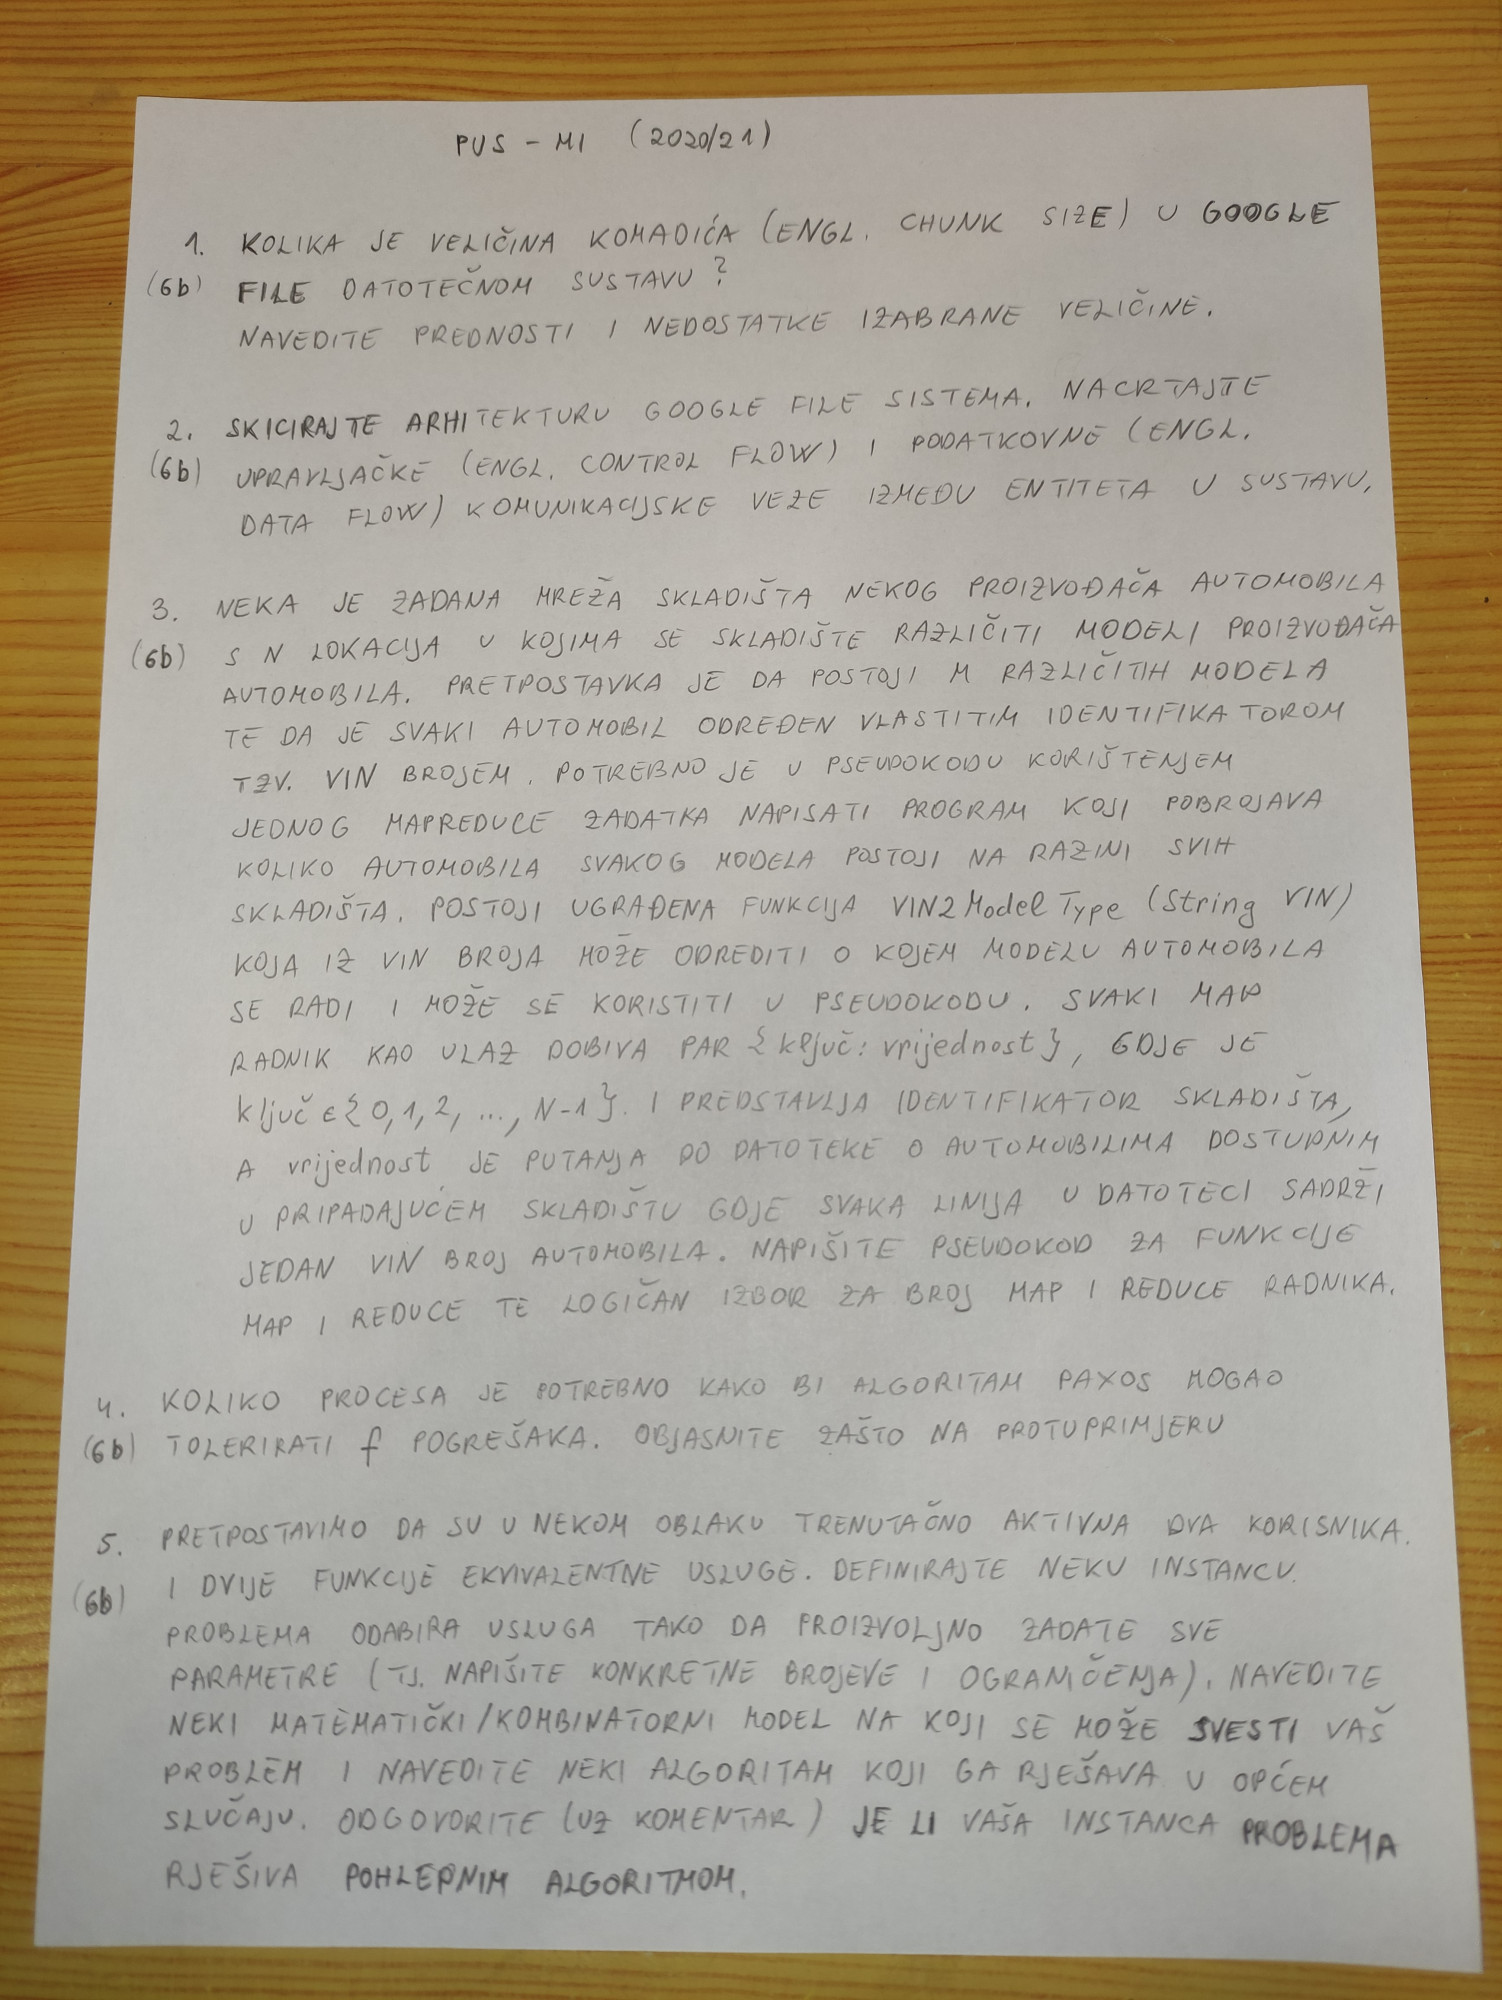 PUS - MI (2020/21)
1. KOLIKA JE VELIČINA KOMADIĆA (ENGL. CHUNK SIZE) U GOOGLE
(6b) FILE DATOTEČNOM SUSTAVU?
NAVEDITE PREDNOSTI I NEDOSTATKE IZABRANE VELIČINE.
2. SKICIRAJTE ARHITEKTURU GOOGLE FILE SISTEMA. NACRTAJTE
(6b) UPRAVLJAČKE (ENGL. CONTROL FLOW) I PODATKOVNE (ENGL.
DATA FLOW) KOMUNIKACIJSKE VEZE IZMEĐU ENTITETA U SUSTAVU.
3. NEKA JE ZADANA MREŽA SKLADIŠTA NEKOG PROIZVOĐAČA AUTOMOBILA
(6b) S N LOKACIJA U KOJIMA SE SKLADIŠTE RAZLIČITI MODELI PROIZVOĐAČA
AUTOMOBILA. PRETPOSTAVKA JE DA POSTOJI M RAZLIČITIH MODELA
TE DA JE SVAKI AUTOMOBIL ODREĐEN VLASTITIM IDENTIFIKATOROM
TZV. VIN BROJEM. POTREBNO JE U PSEUDOKODU KORIŠTENJEM
JEDNOG MAPREDUCE ZADATKA NAPISATI PROGRAM KOJI POBROJAVA
KOLIKO AUTOMOBILA SVAKOG MODELA POSTOJI NA RAZINI SVIH
SKLADIŠTA. POSTOJI UGRAĐENA FUNKCIJA VIN2ModelType (String VIN)
KOJA IZ VIN BROJA MOŽE ODREDITI O KOJEM MODELU AUTOMOBILA
SE RADI I MOŽE SE KORISTITI U PSEUDOKODU. SVAKI MAP
RADNIK KAO ULAZ DOBIVA PAR {ključ: vrijednost}, GDJE JE
ključ ∈ {0,1,2, ..., N-1}. I PREDSTAVLJA IDENTIFIKATOR SKLADIŠTA,
A vrijednost JE PUTANJA DO DATOTEKE O AUTOMOBILIMA DOSTUPNIM
U PRIPADAJUĆEM SKLADIŠTU GDJE SVAKA LINIJA U DATOTECI SADRŽI
JEDAN VIN BROJ AUTOMOBILA. NAPIŠITE PSEUDOKOD ZA FUNKCIJE
MAP I REDUCE TE LOGIČAN IZBOR ZA BROJ MAP I REDUCE RADNIKA.
4. KOLIKO PROCESA JE POTREBNO KAKO BI ALGORITAM PAXOS MOGAO
(6b) TOLERIRATI f POGREŠAKA. OBJASNITE ZAŠTO NA PROTUPRIMJERU
5. PRETPOSTAVIMO DA SU U NEKOM OBLAKU TRENUTAČNO AKTIVNA DVA KORISNIKA.
(6b) I DVIJE FUNKCIJE EKVIVALENTNE USLUGE. DEFINIRAJTE NEKU INSTANCU
PROBLEMA ODABIRA USLUGA TAKO DA PROIZVOLJNO ZADATE SVE
PARAMETRE (TJ. NAPIŠITE KONKRETNE BROJEVE I OGRANIČENJA). NAVEDITE
NEKI MATEMATIČKI/KOMBINATORNI MODEL NA KOJI SE MOŽE SVESTI VAŠ
PROBLEM I NAVEDITE NEKI ALGORITAM KOJI GA RJEŠAVA U OPĆEM
SLUČAJU. ODGOVORITE (UZ KOMENTAR) JE LI VAŠA INSTANCA PROBLEMA
RJEŠIVA POHLEPNIM ALGORITMOM.